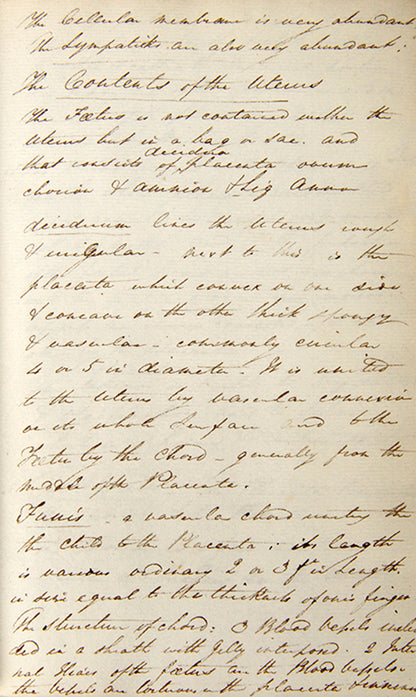 The Cellular membrane is very abundant
The Sympaticks are also very abundant;
The Contents of the Uterus
The Fœtus is not contained within the
Uterus but in a bag or sac. and
decidua
that consists of placenta ovum
chorion & amnion & Liq Amnn
deciduum lines the Uterus rough
& irregular – next to this is the
placenta which convex on one side
& concave on the other thick spongy
& vascular – commonly circular
4 or 5 in diameter. It is united
to the Uterus by vascular connexion
on its whole Surface and to the
Fœtus by the Chord – generally from the
middle of the Placenta.
Funis – a vascular chord uniting the
the child to the Placenta; its length
is various ordinary 2 or 3 ft in Length.
in size equal to the thickness of one's finger
The structure of chord: 3 Blood vessels inclu
ded in a sheath with Jelly interposed. 2
of the fœtus are the Blood vessels
the vessels are tortuous in the placenta